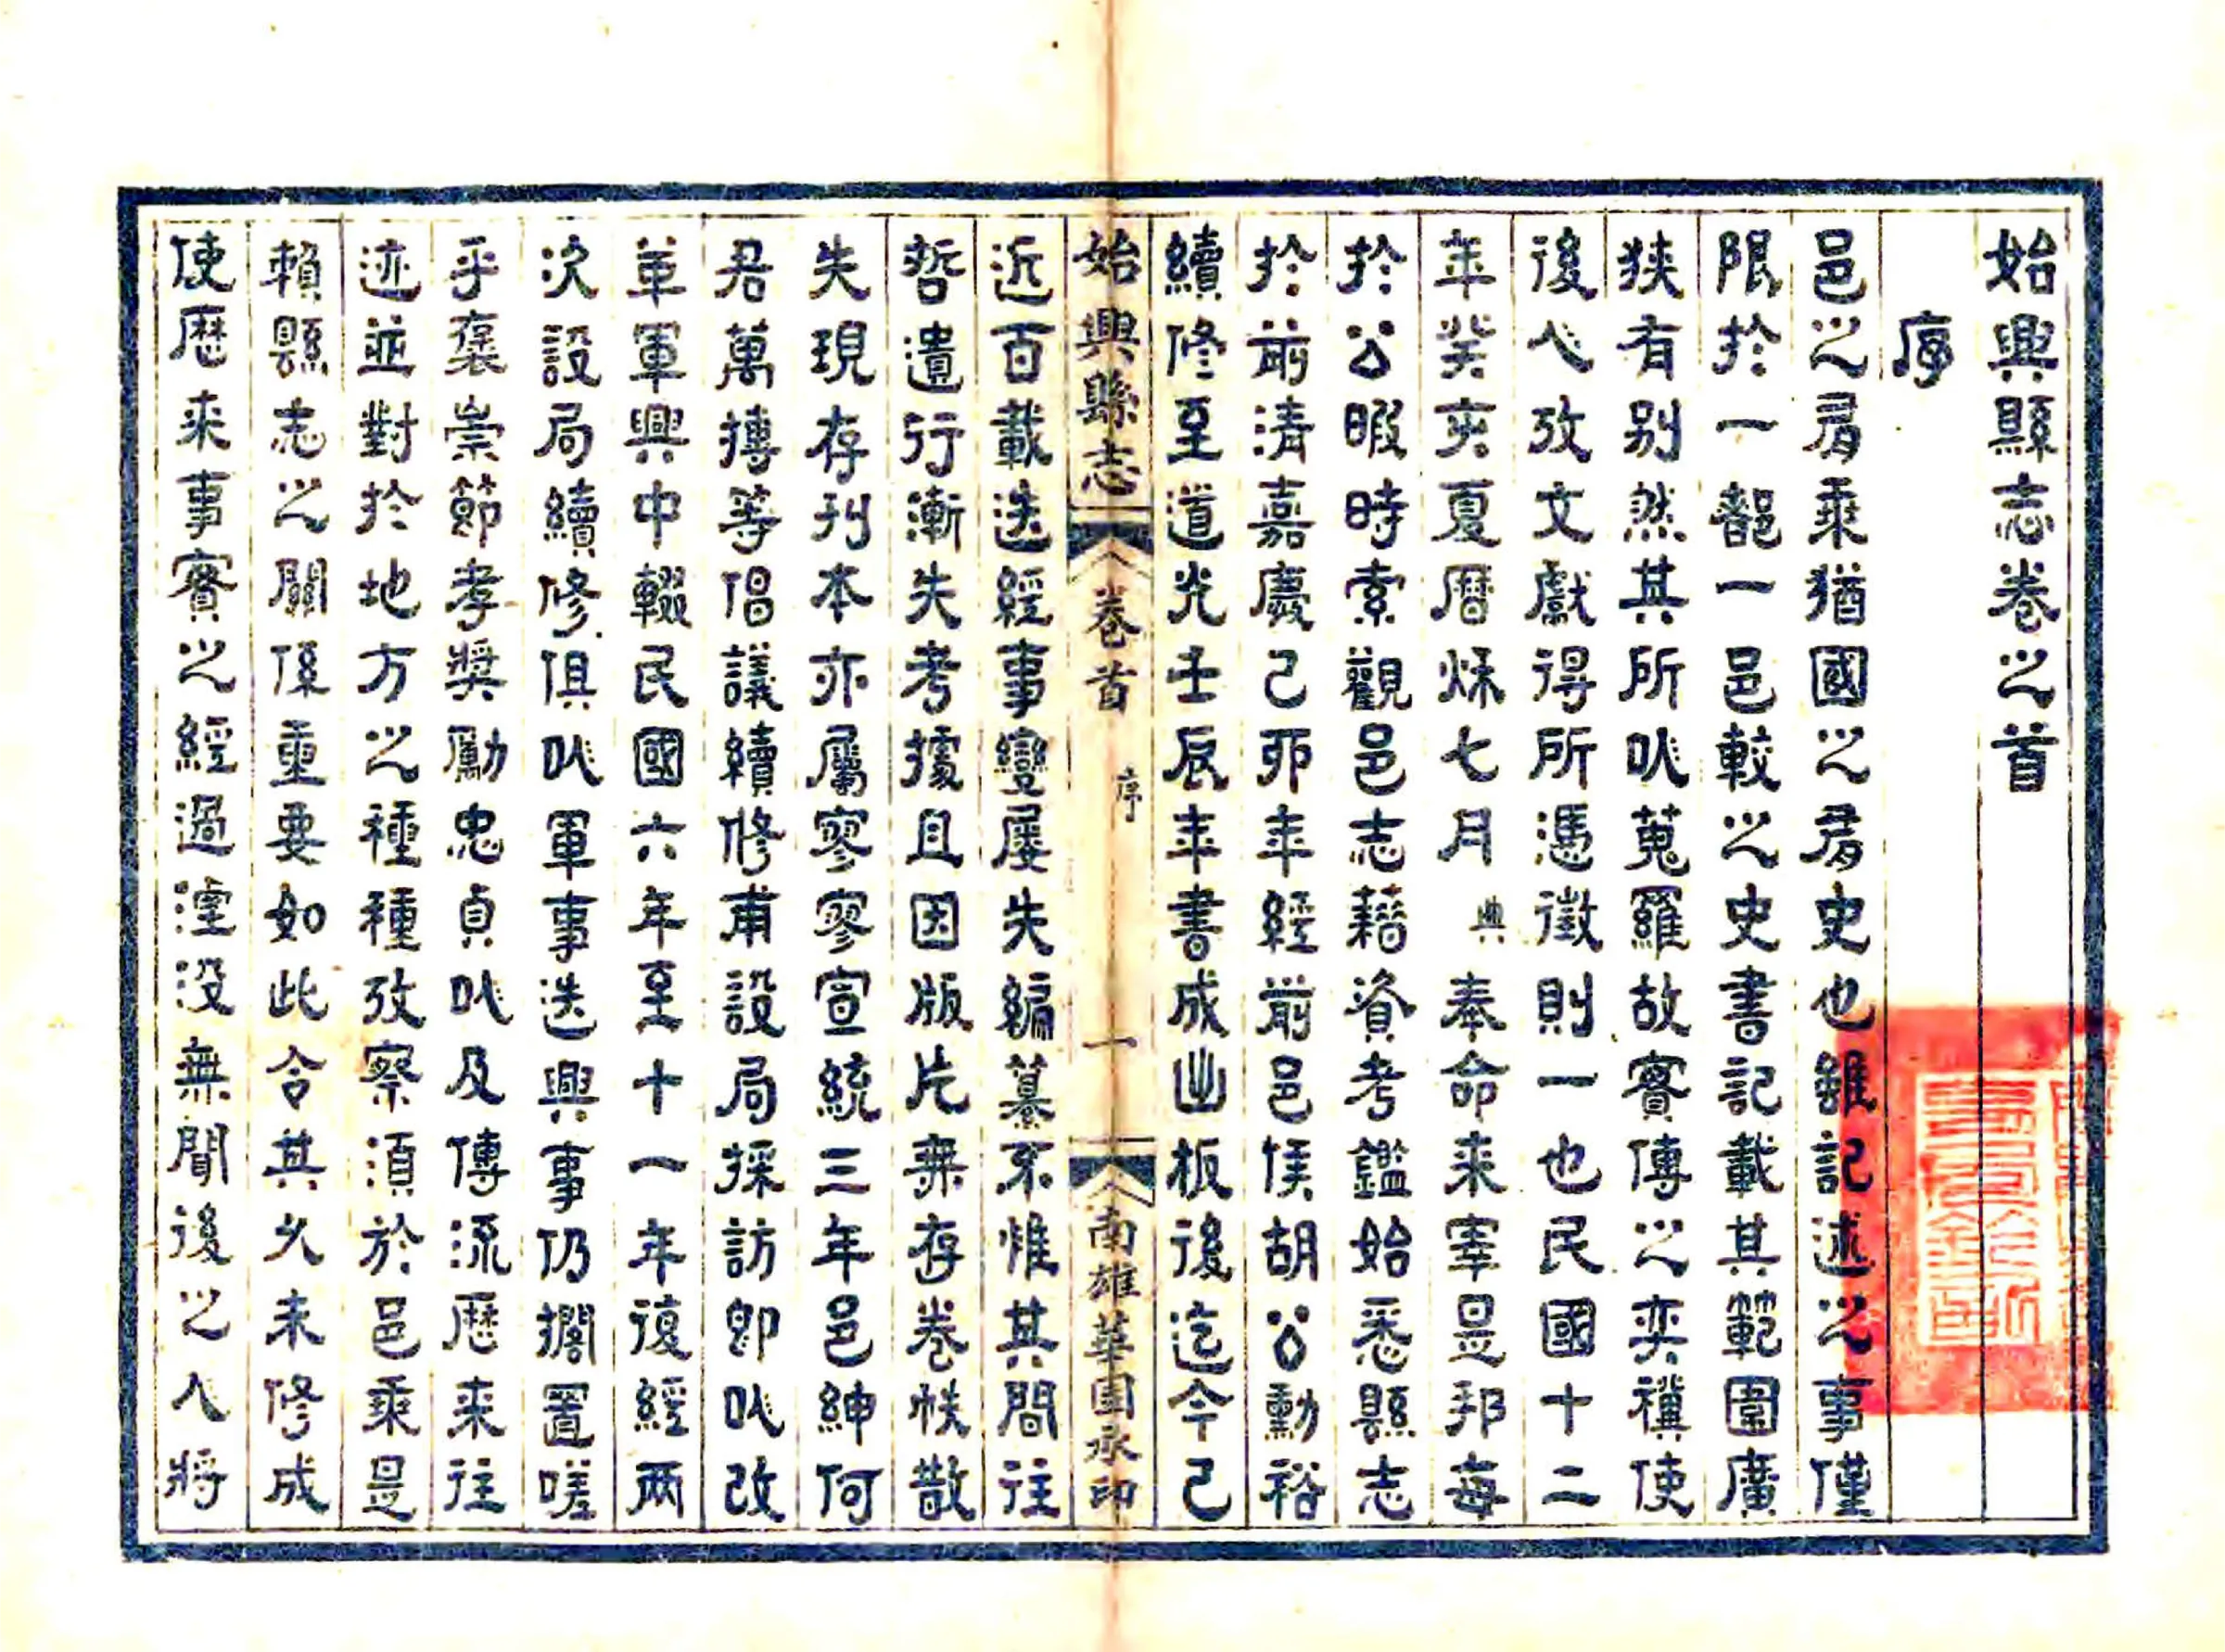 始興縣志卷之首
序
邑之有乘猶國之有史也雖記述之事僅
限於一部一邑較之史書記載其範圍廣
狹有别然其所㕥蒐羅故實傳之奕禩使
後人攷文獻得所憑徵則一也民國十二
年癸亥夏曆烁七月典奉命来宰是邦每
於公暇時索觀邑志藉資考鑑始悉縣志
於前清嘉慶己卯年經前邑侯胡公勳裕
續修至道光壬辰年書成出板後迄今已
始興縣志
卷首
序
一
南雄華國承印
近百載迭經事變屢失編纂不惟其間往
哲遺行漸失考據且因版片無存卷帙散
失現存刋本亦屬寥寥宣統三年邑紳何
君萬摶等倡議續修甫設局採訪卽㕥改
革軍興中輟民國六年至十一年復經两
次設局續修俱㕥軍事迭興事仍擱置嗟
乎襃崇節孝奬勵忠貞㕥及傳流歷来往
迹並對於地方之種種攷察須於邑乘是
賴縣志之關係重要如此令其久未修成
使歷来事實之經過湮没無聞後之人將